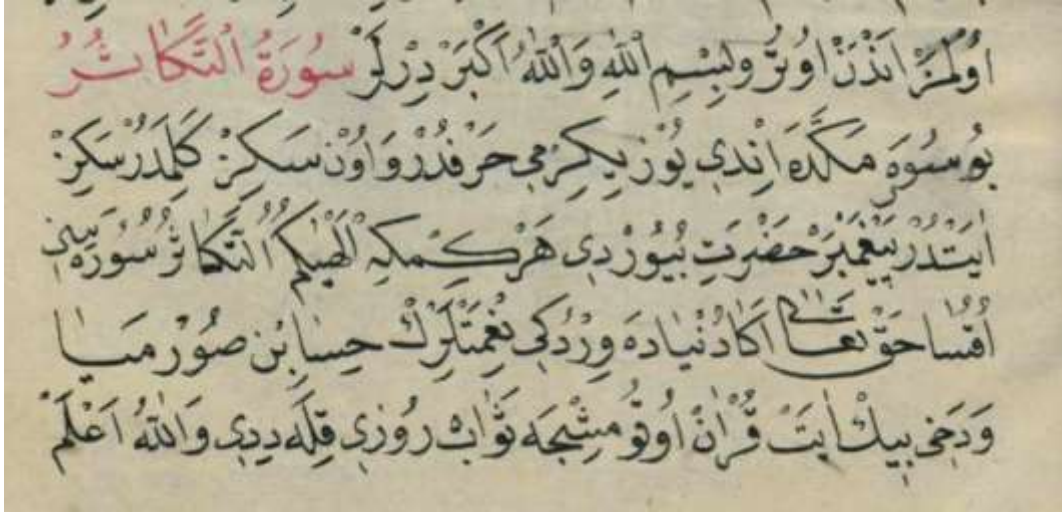 اُولْمَزْ اَنْدَنْ اُوتُرُو بِسْمِ اللّٰهِ وَاللّٰهُ اَكْبَرْ دِرْلَرْ سُورَةُ التَّكَاثُرُ
بُو سُورَه مَكَّدَه اِنْدِي يُوز يِكِرْمِي حَرْفْدُرْ وَ اُونْ سَكِزْ كَلِمَدُرْ سَكِزْ
اٰيَتْدُرْ پَيْغَمْبَرْ حَضْرَتِ بُيُورْدِي هَرْ كِمْكِه اَلْهٰيكُمُ التَّكَاثُرُ سُورَه سِنِي
اُقُسَا حَقْ تَعَالٰى اَكَا دُنْيٰادَه وِرْدُكِي نِعْمَتْلَرِكْ حِسٰابِنْ صُورْمَيٰا
وَ دَخِي بِيكْ اٰيَتْ قُرْاٰنْ اُوقُومِشْجَه ثَوَابْ رُوزِي قِلَه دِيدِي وَاللّٰهُ اَعْلَمْ